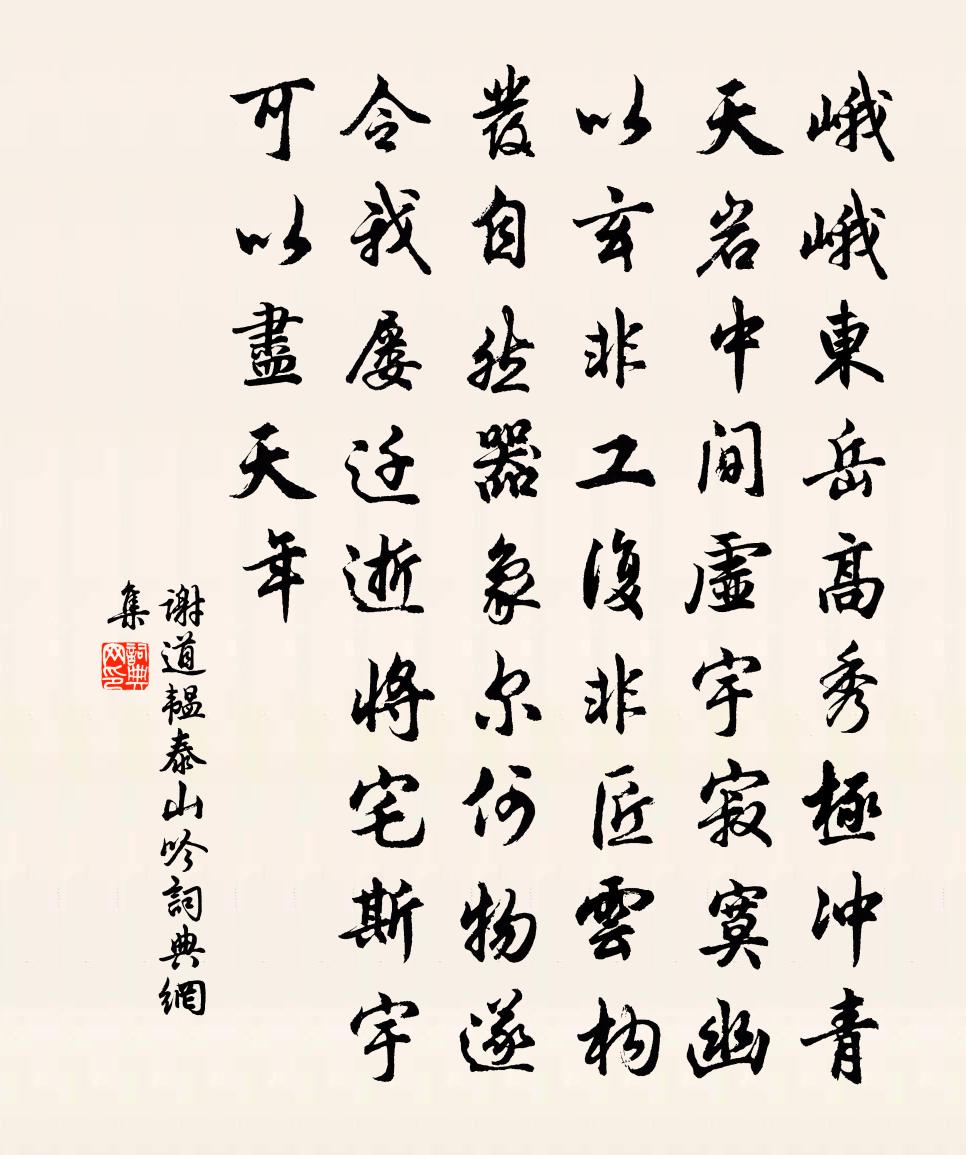 峨峨東岳高秀極冲青
天岩中間虛宇寂寞幽
以玄非工復非匠雲构
發自然器象尔何物遂
令我屡迁逝将宅斯宇
可以盡天年
谢道韞泰山吟詞典網
集
詞典网印